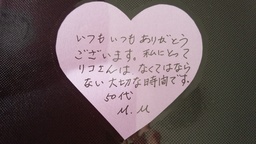 いつもいつもありがとう
ございます。私にとって
リコさんは なくてはなら
ない大切な時間です。
50代
M.M